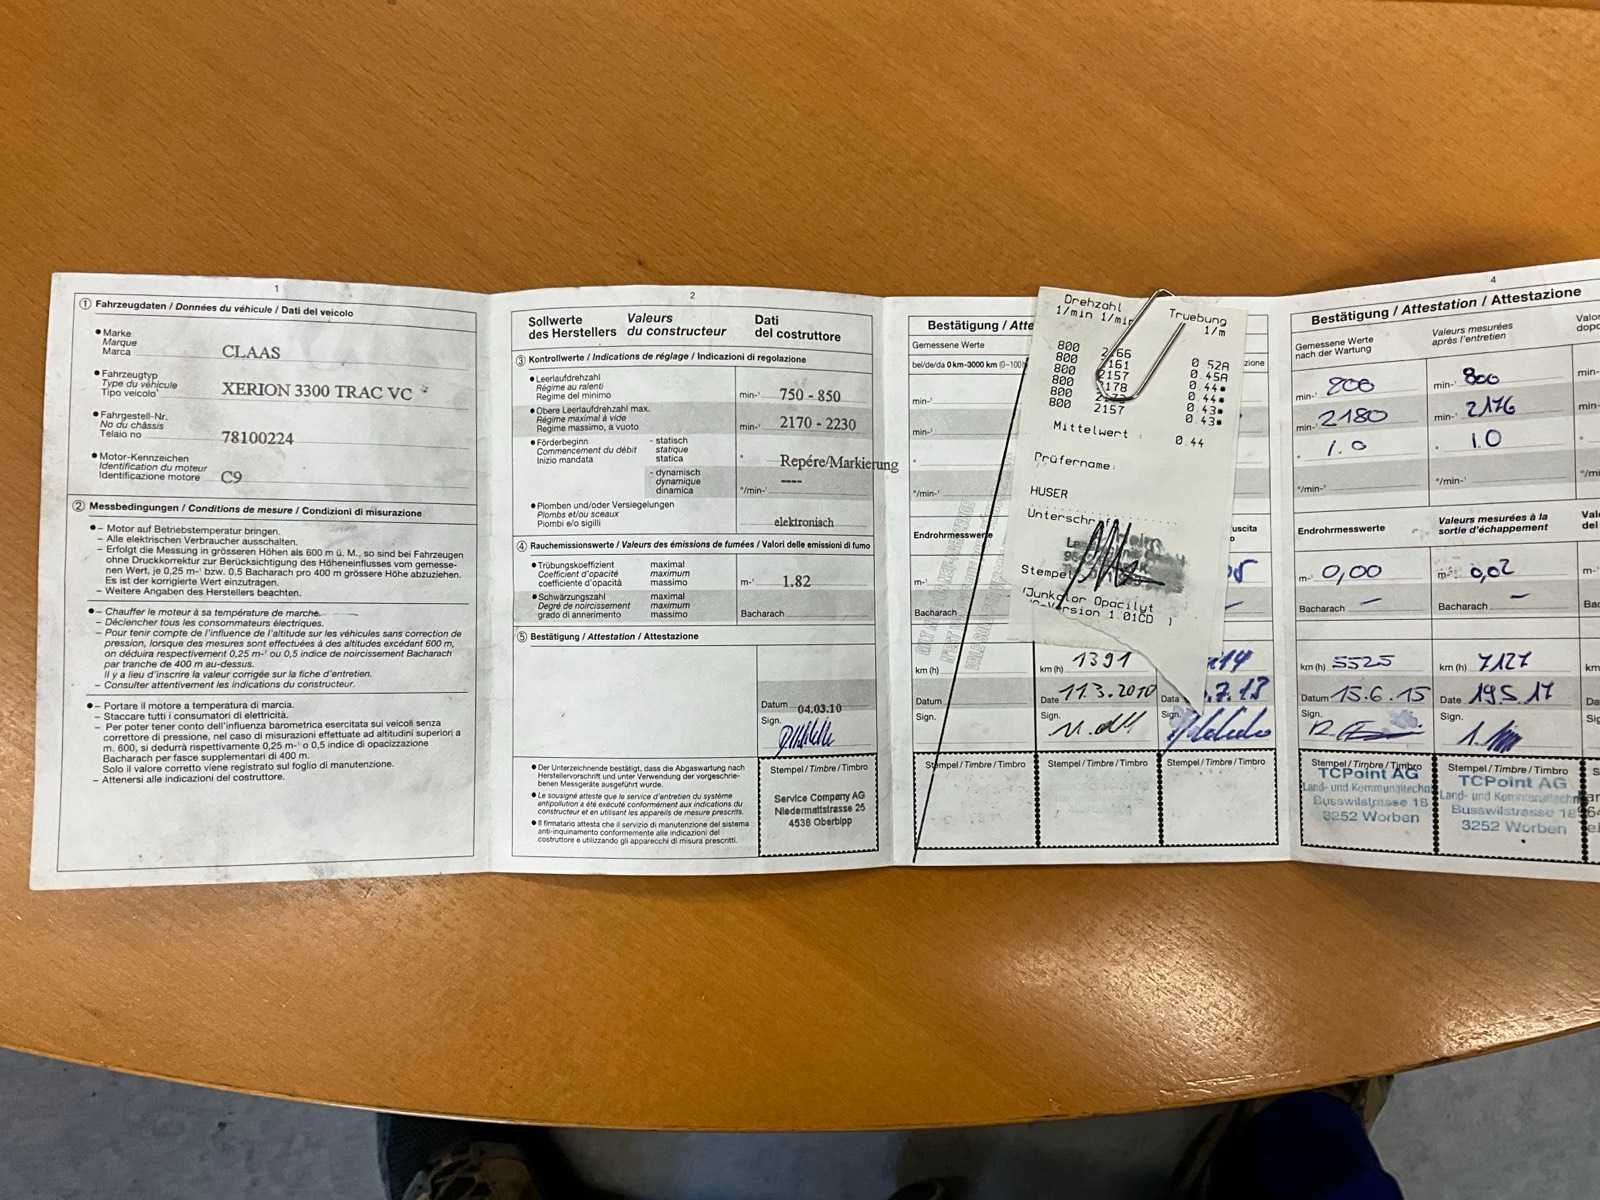 1
① Fahrzeugdaten / Données du véhicule / Dati del veicolo
Marke
Marque
Marca
CLAAS
Fahrzeugtyp
Type du véhicule
Tipo veicolo
XERION 3300 TRAC VC
Fahrgestell-Nr.
No du châssis
Telaio no
78100224
Motor-Kennzeichen
Identification du moteur
Identificazione motore
C9
② Messbedingungen / Conditions de mesure / Condizioni di misurazione
– Motor auf Betriebstemperatur bringen.
– Alle elektrischen Verbraucher ausschalten.
– Erfolgt die Messung in grösseren Höhen als 600 m ü. M., so sind bei Fahrzeugen
ohne Druckkorrektur zur Berücksichtigung des Höheneinflusses vom gemesse-
nen Wert, je 0,25 m-¹ bzw. 0,5 Bacharach pro 400 m grössere Höhe abzuziehen.
Es ist der korrigierte Wert einzutragen.
– Weitere Angaben des Herstellers beachten.
– Chauffer le moteur à sa température de marche.
– Déclencher tous les consommateurs électriques.
– Pour tenir compte de l'influence de l'altitude sur les véhicules sans correction de
pression, lorsque des mesures sont effectuées à des altitudes excédant 600 m,
on déduira respectivement 0,25 m-¹ ou 0,5 indice de noircissement Bacharach
par tranche de 400 m au-dessus.
Il y a lieu d'inscrire la valeur corrigée sur la fiche d'entretien.
– Consulter attentivement les indications du constructeur.
– Portare il motore a temperatura di marcia.
– Staccare tutti i consumatori di elettricità.
– Per poter tener conto dell'influenza barometrica esercitata sui veicoli senza
correttore di pressione, nel caso di misurazioni effettuate ad altitudini superiori a
m. 600, si dedurrà rispettivamente 0,25 m-¹ o 0,5 indice di opacizzazione
Bacharach per fasce supplementari di 400 m.
Solo il valore corretto viene registrato sul foglio di manutenzione.
– Attenersi alle indicazioni del costruttore.
2
Sollwerte des Herstellers
Valeurs du constructeur
Dati del costruttore
③ Kontrollwerte / Indications de réglage / Indicazioni di regolazione
Leerlaufdrehzahl
Régime au ralenti
Regime del minimo
min-¹ 750 - 850
Obere Leerlaufdrehzahl max.
Régime maximal à vide
Regime massimo, a vuoto
min-¹ 2170 - 2230
Förderbeginn
Commencement du débit
Inizio mandata
- statisch
statique
statica
° Repére/Markierung
- dynamisch
dynamique
dinamica
°/min-¹ ----
Plomben und/oder Versiegelungen
Plombs et/ou sceaux
Piombi e/o sigilli
elektronisch
④ Rauchemissionswerte / Valeurs des émissions de fumées / Valori delle emissioni di fumo
Trübungskoeffizient maximal
Coefficient d'opacité maximum
coefficiente d'opacità massimo
m-¹ 1.82
Schwärzungszahl maximal
Degré de noircissement maximum
grado di annerimento massimo
Bacharach
⑤ Bestätigung / Attestation / Attestazione
Datum 04.03.10
Sign.
Der Unterzeichnende bestätigt, dass die Abgaswartung nach
Herstellervorschrift und unter Verwendung der vorgeschrie-
benen Messgeräte ausgeführt wurde.
Le sousigné atteste que le service d'entretien du système
antipollution a été exécuté conformément aux indications du
constructeur et en utilisant les appareils de mesure prescrits.
Il firmatario attesta che il servizio di manutenzione del sistema
anti-inquinamento conformemente alle indicazioni del
costruttore e utilizzando gli apparecchi di misura prescritti.
Stempel / Timbre / Timbro
Service Company AG
Niedermattstrasse 25
4538 Oberbipp
Bestätigung / Atte
Gemessene Werte
bei/de/da 0 km-3000 km
zione
min-¹
min-¹
°
°/min-¹
Endrohrmesswerte
uscita
m-¹
Bacharach
km (h)
km (h) 1391
14
Datum
Date 11.3.2010
Data .7.13
Sign.
Sign.
Sign.
Stempel / Timbre / Timbro
Stempel / Timbre / Timbro
Stempel / Timbre / Timbro
Drehzahl Truebung
1/min 1/min 1/m
800 2166 0.52A
800 2161 0.45A
800 2157 0.44*
800 2178 0.44*
800 0.43*
800 2157 0.43*
Mittelwert : 0.44
Prüfername:
HUSER
Unterschrif
Stempel
Junkalor Opacilyt
Version 1.01CD )
4
Bestätigung / Attestation / Attestazione
Gemessene Werte
nach der Wartung
Valeurs mesurées
après l'entretien
Valor
dopo
min-¹ 800
min-¹ 800
min-¹
min-¹ 2180
min-¹ 2176
min-¹
° 1.0
° 1.0
°/min-¹
°/min-¹
°/mi
Endrohrmesswerte
Valeurs mesurées à la
sortie d'échappement
Val
del
m-¹ 0,00
m-¹ 0,02
m-¹
Bacharach –
Bacharach –
Bac
km (h) 5525
km (h) 7127
km
Datum 15.6.15
Date 19.5.17
Da
Sign.
Sign.
Sig
Stempel / Timbre / Timbro
TCPoint AG
Land- und Kommunaltechn
Busswilstrasse 18
3252 Worben
Stempel / Timbre / Timbro
TCPoint AG
Land- und Kommunaltechn
Busswilstrasse 18
3252 Worben